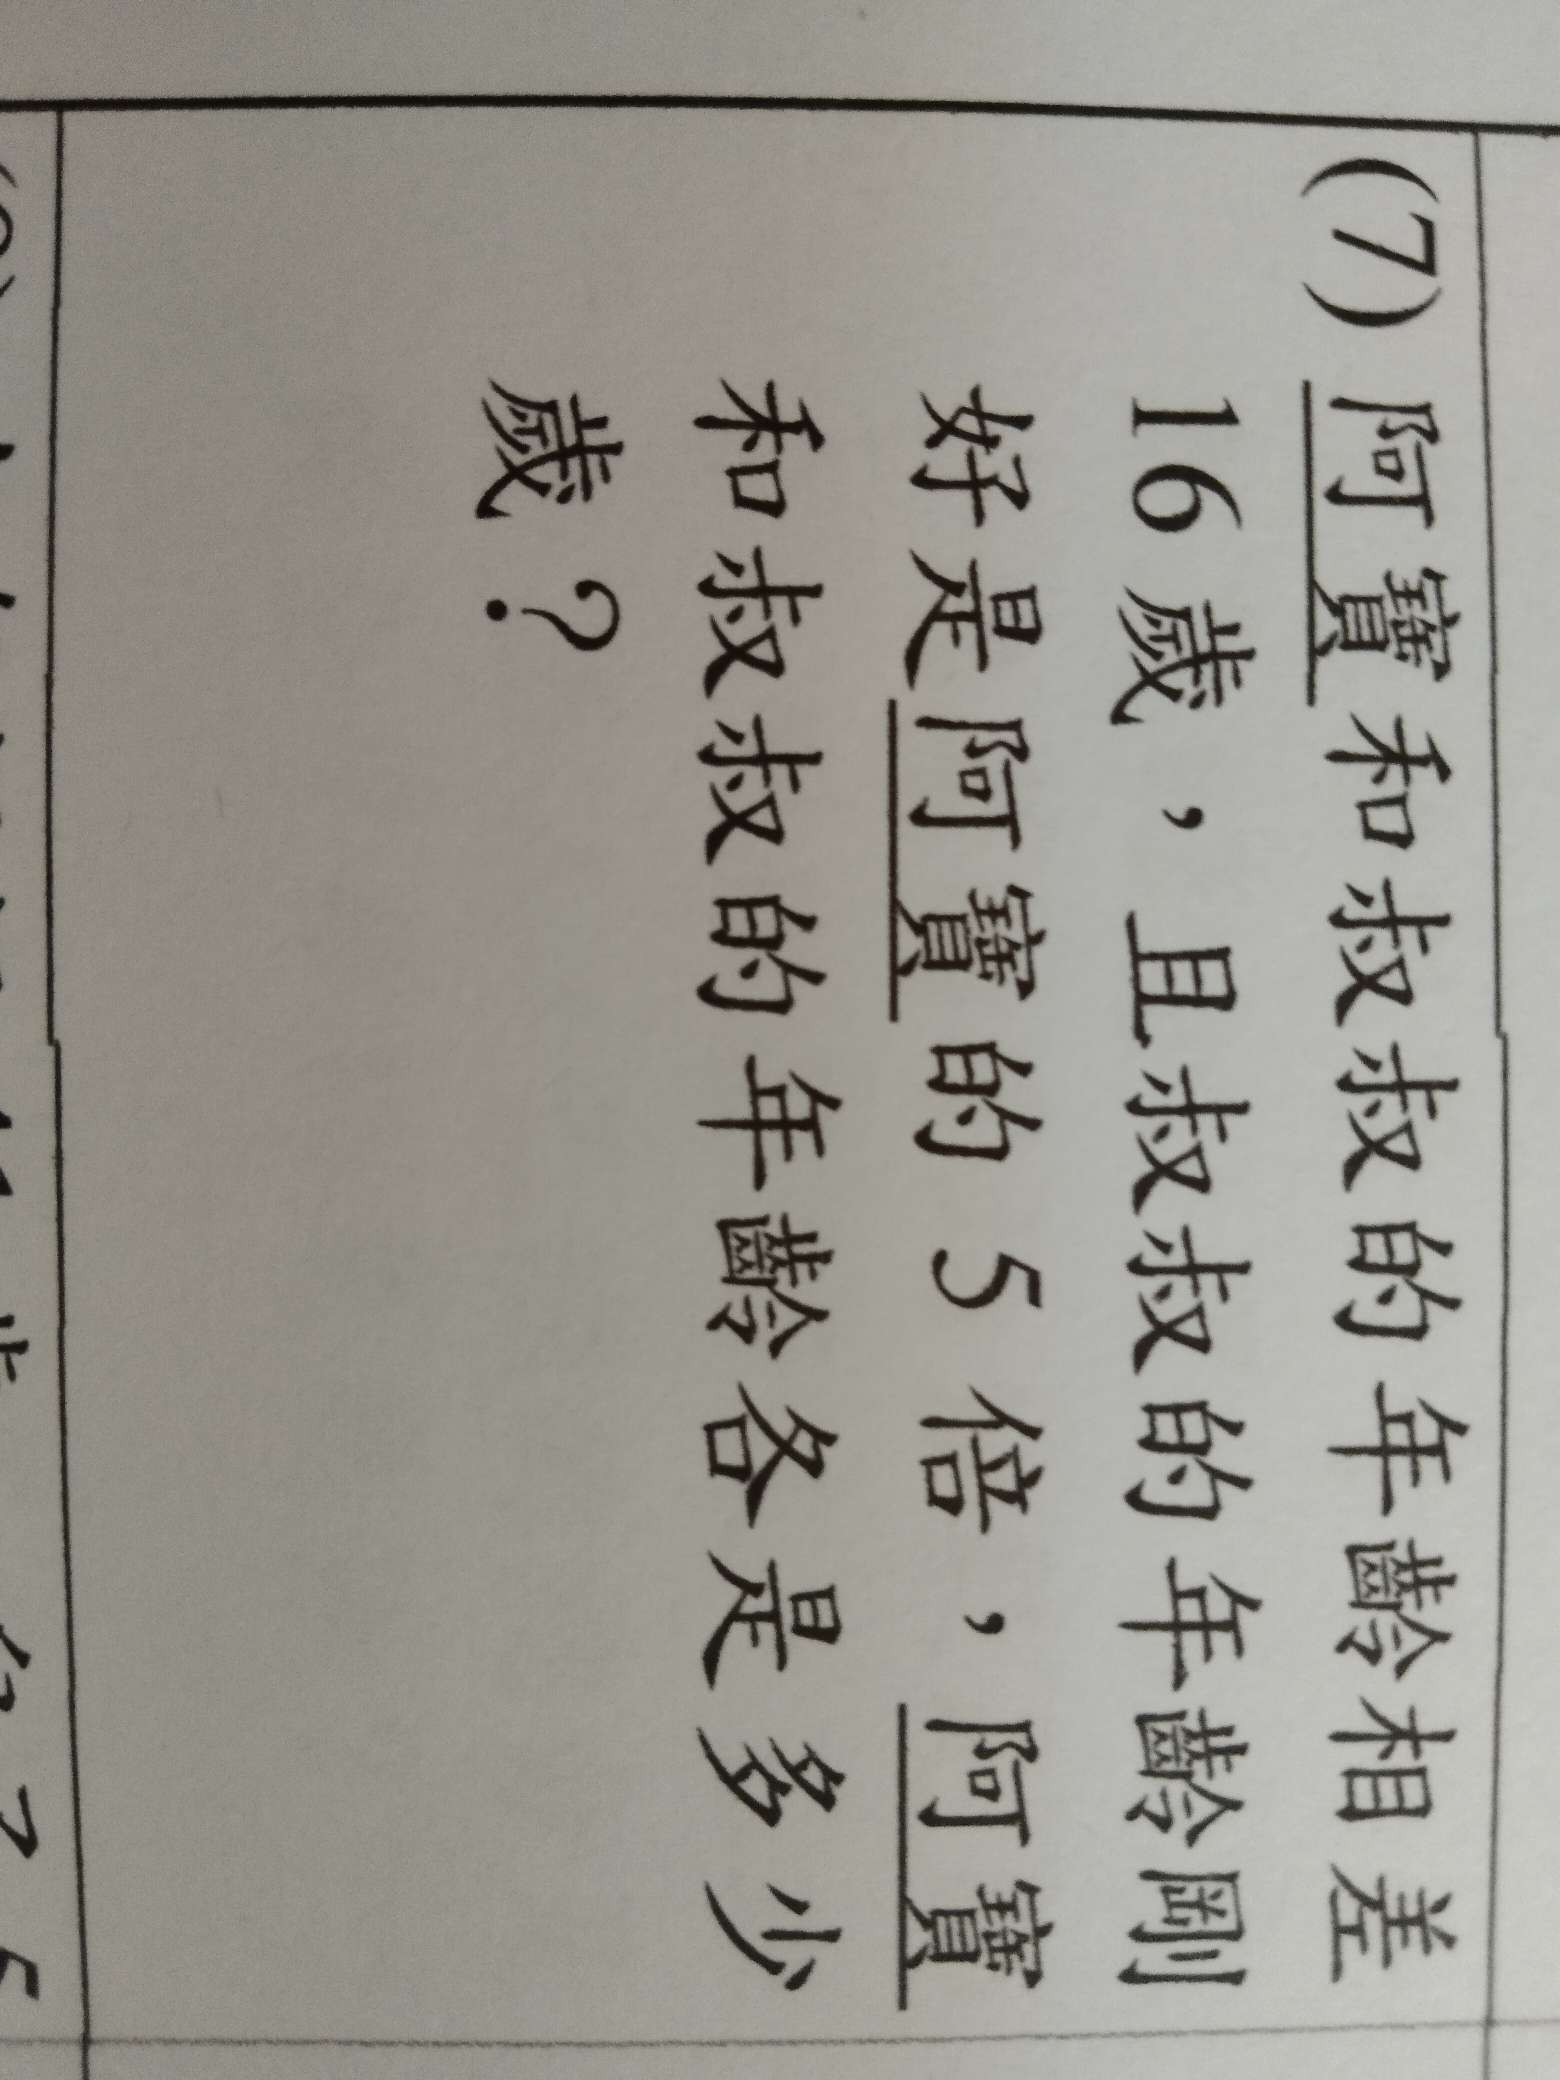 (7) 阿寶和叔叔的年齡相差
16歲，且叔叔的年齡剛
好是阿寶的 5 倍，阿寶
和叔叔的年齡各是多少
歲？